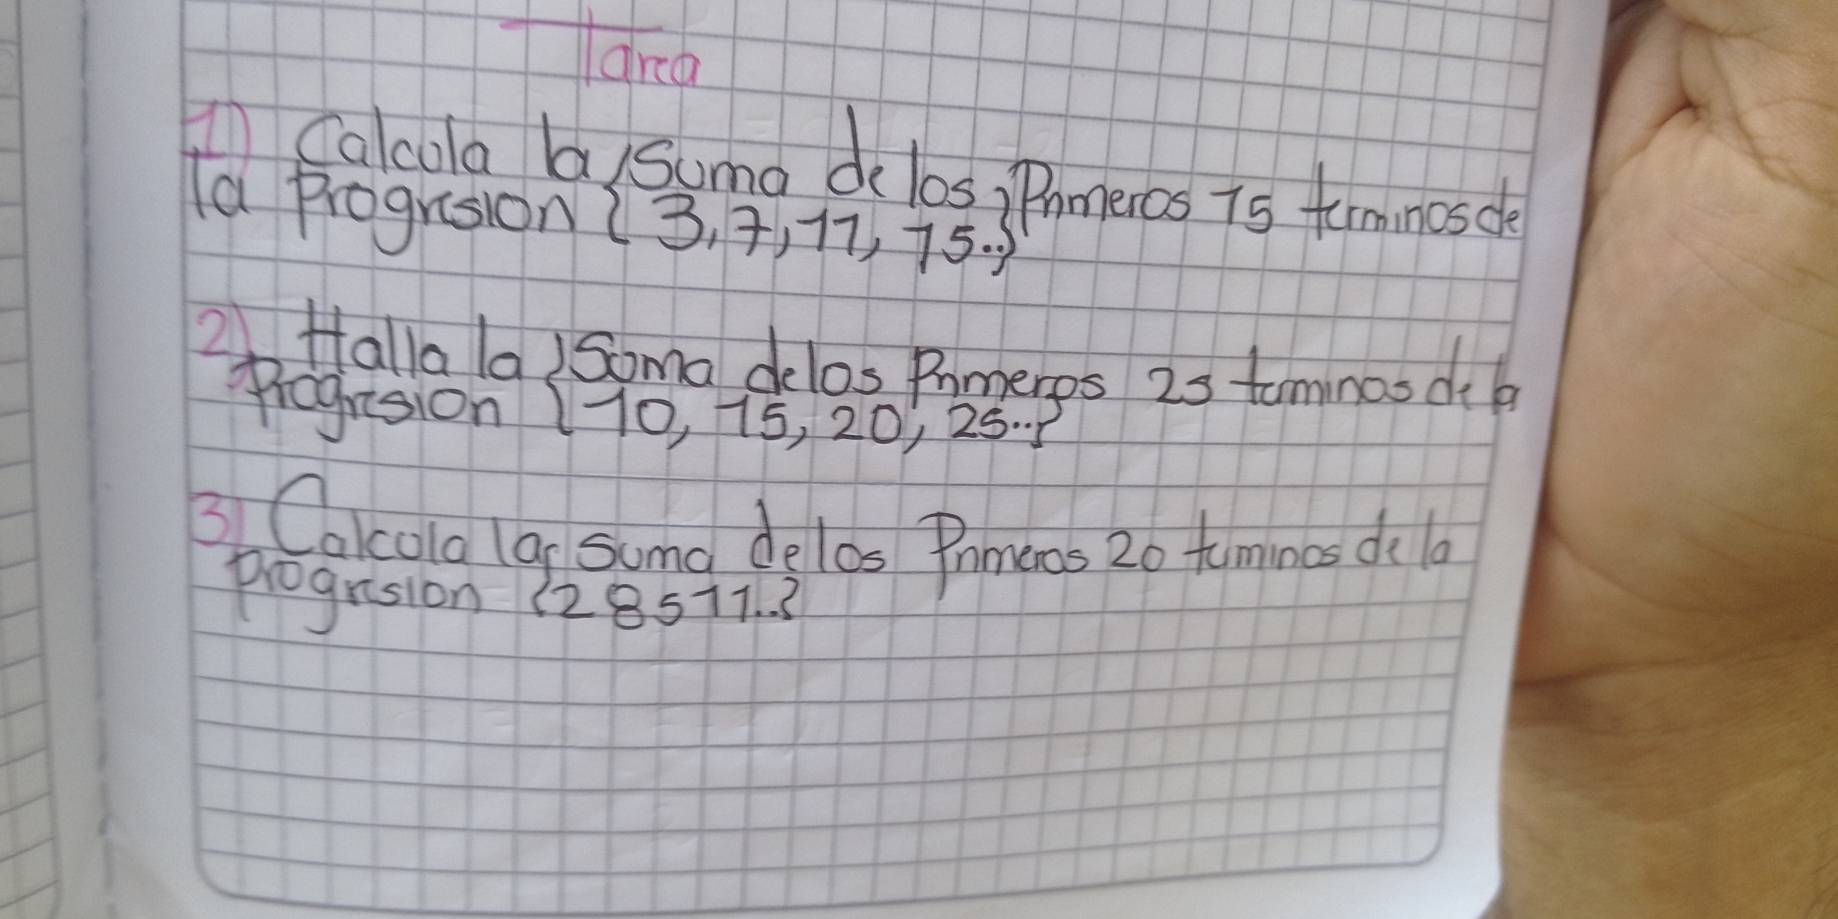 Tarea
1) Calcula la suma de los Primeros 15 terminos de
la Progresion {3, 7, 11, 15..}
2) Halla la Suma de los Primeros 25 terminos de la
Progresion {10, 15, 20, 25..}
3) Calcula la suma de los Primeros 20 terminos de la
progresion {2 8 5 11..}